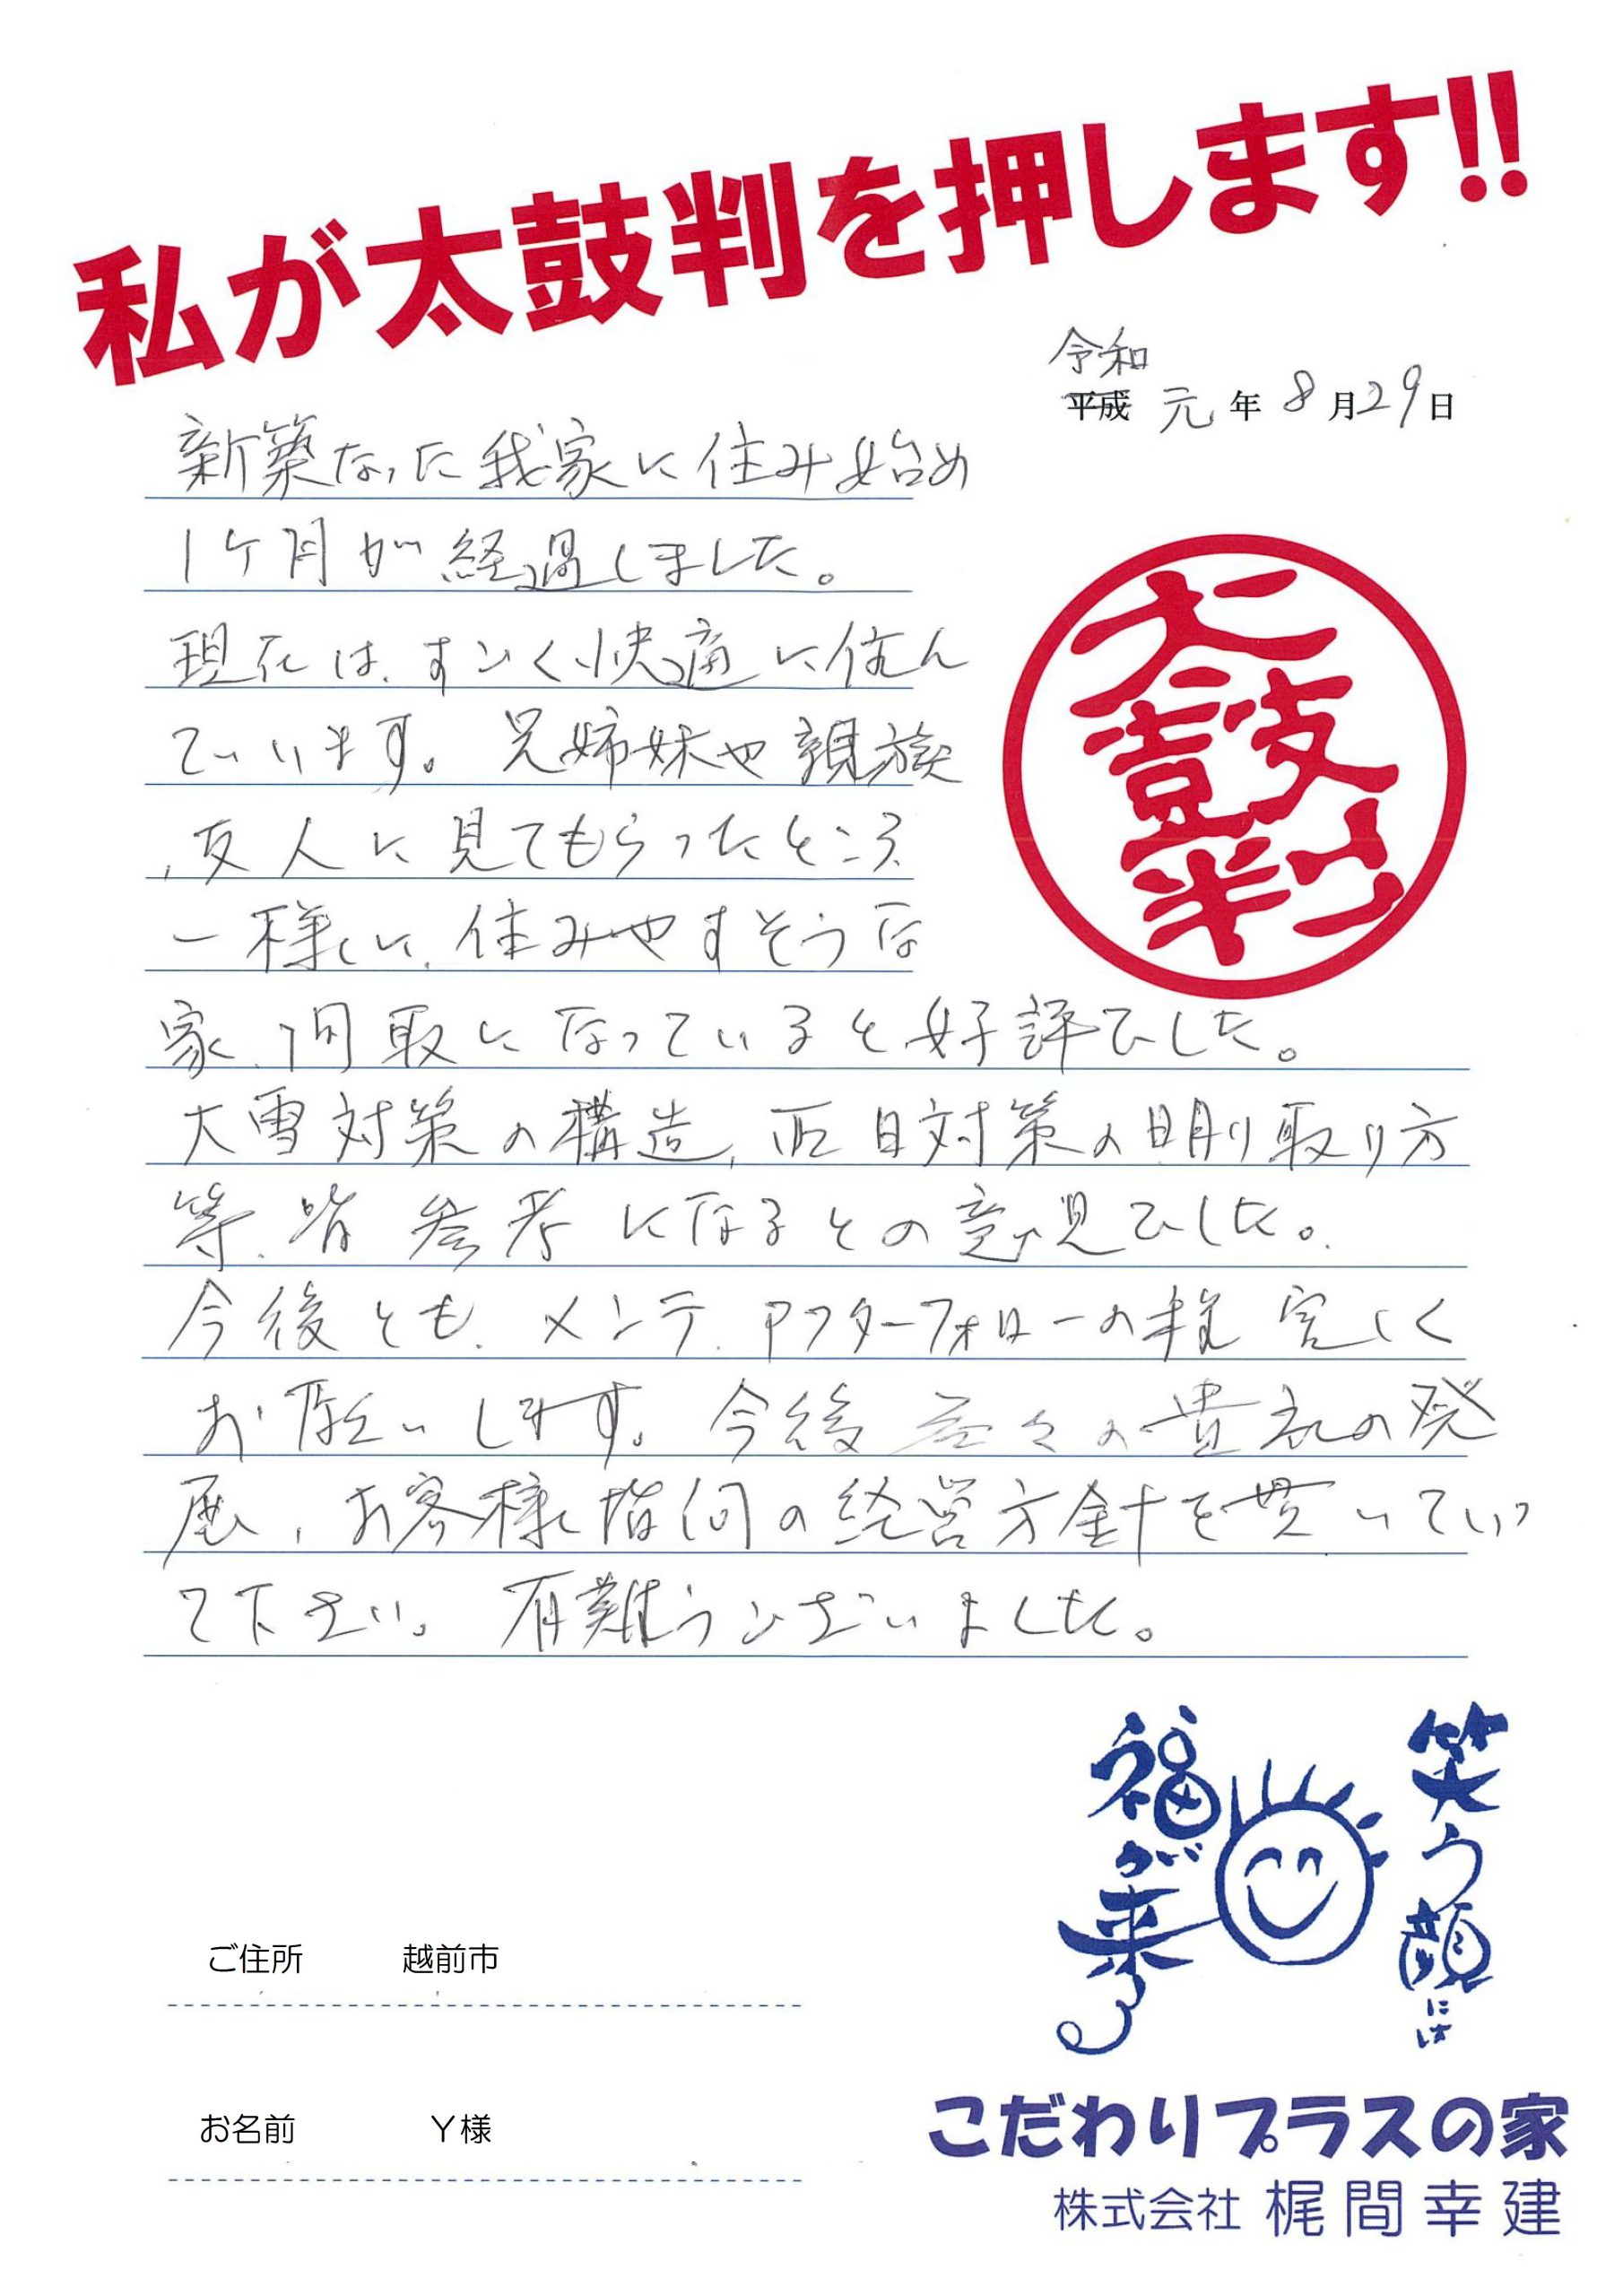 私が太鼓判を押します!!
令和
平成 元 年 8 月 29 日
新築なった我家に住み始め
1ケ月が経過しました。
現在は、すごく快適に住ん
でいます。兄姉妹や親族
、友人に見てもらったところ、
一様に、住みやすそうな
家、間取になっていると好評でした。
大雪対策の構造、西日対策の明り取り方
等、皆参考になるとの意見でした。
今後とも、メンテ、アフターフォローの程宜しく
お願いします。今後益々の貴社の発
展、お客様指向の経営方針を貫いていっ
て下さい。有難うございました。
太鼓判
笑う顔には
福が来る
ご住所 越前市
お名前 Y様
こだわりプラスの家
株式会社 梶間幸建